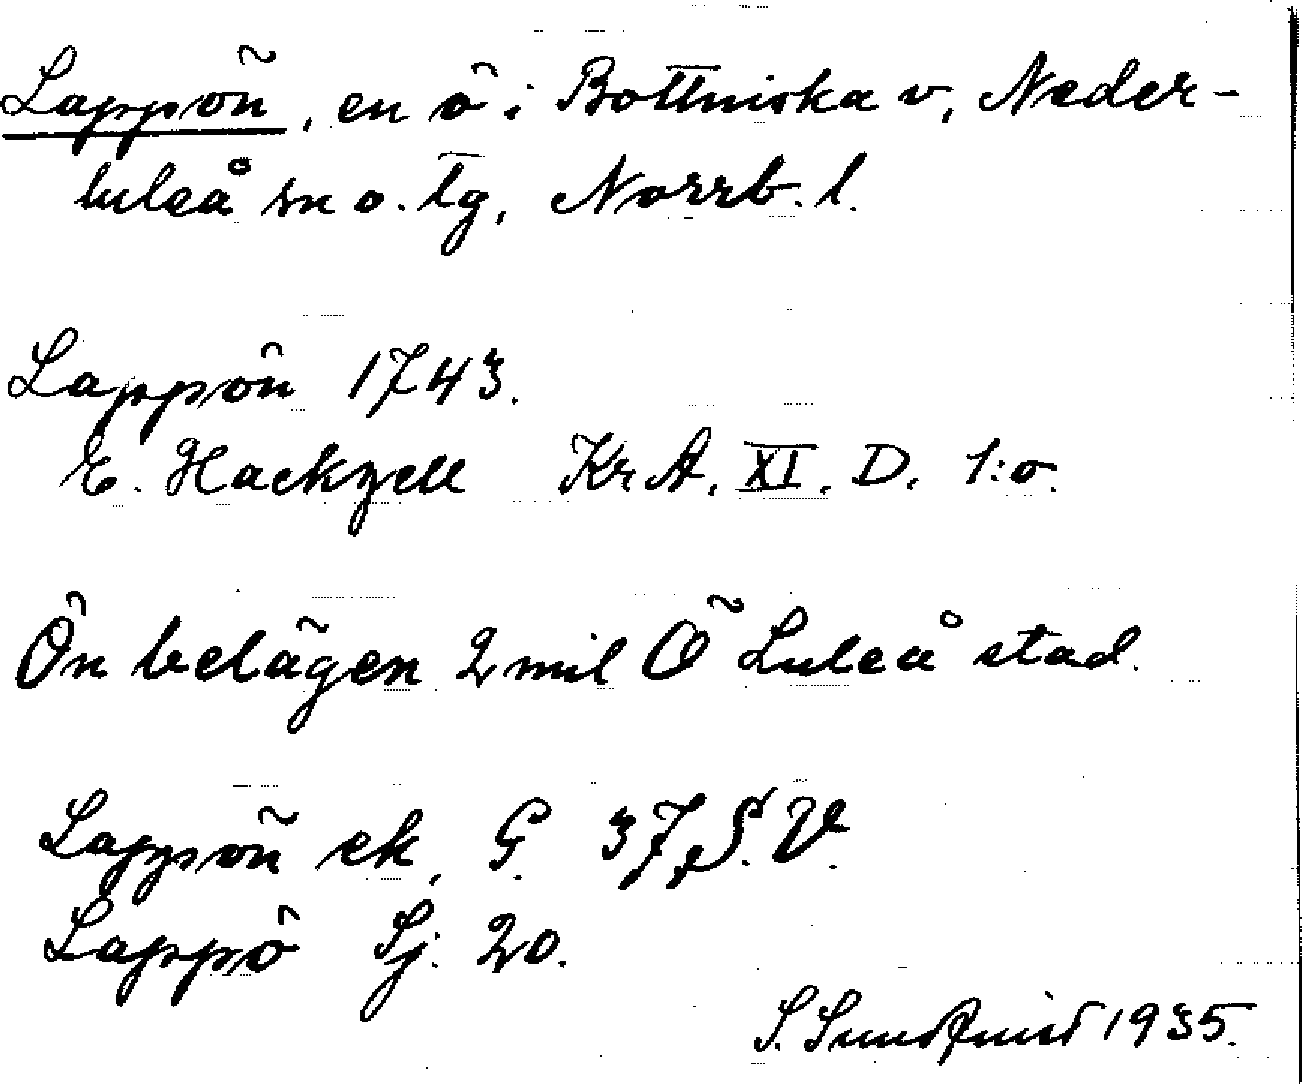 Lappön, en ö i Bottniska v, Neder-
luleå sn o. tg, Norrb. l.
Lappön 1743.
E. Hackzell KrA. XI. D. 1:o.
Ön belägen 2 mil Ö Luleå stad.
Lappön ek, G. 37, S. V.
Lappö Sj. 20.
S. Sundqvist 1935.